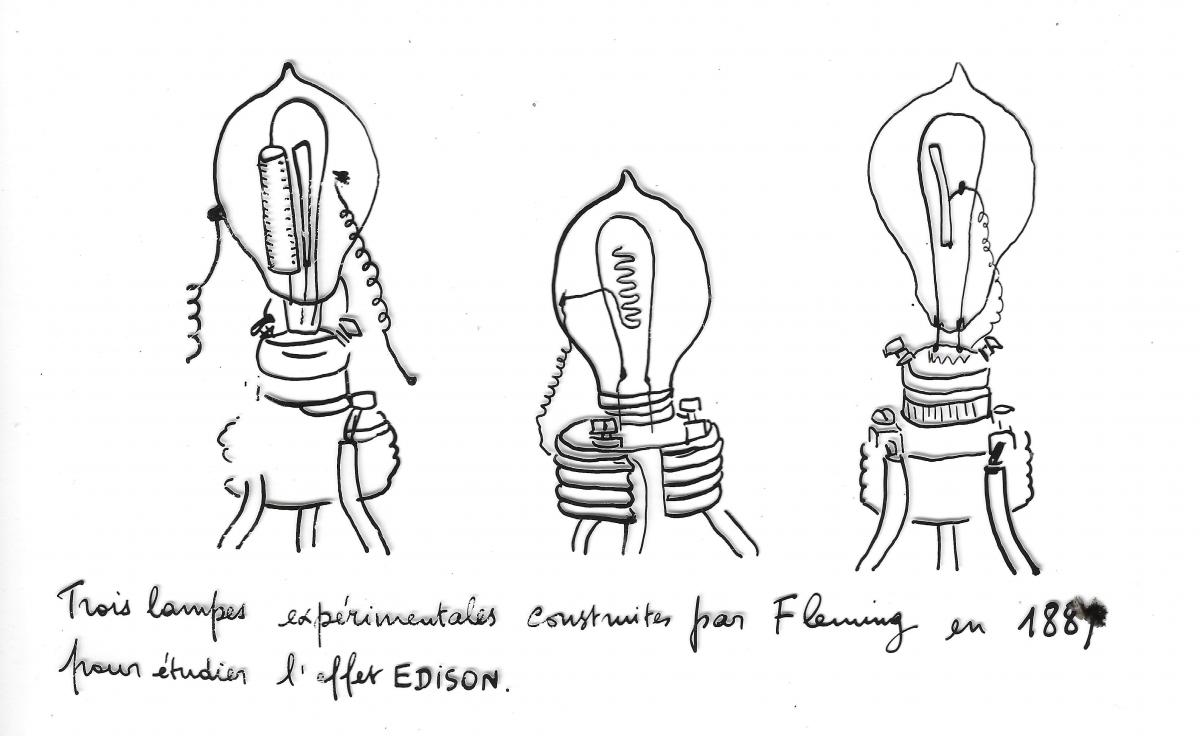 Trois lampes expérimentales construites par Fleming en 188
pour étudier l'effet EDISON.